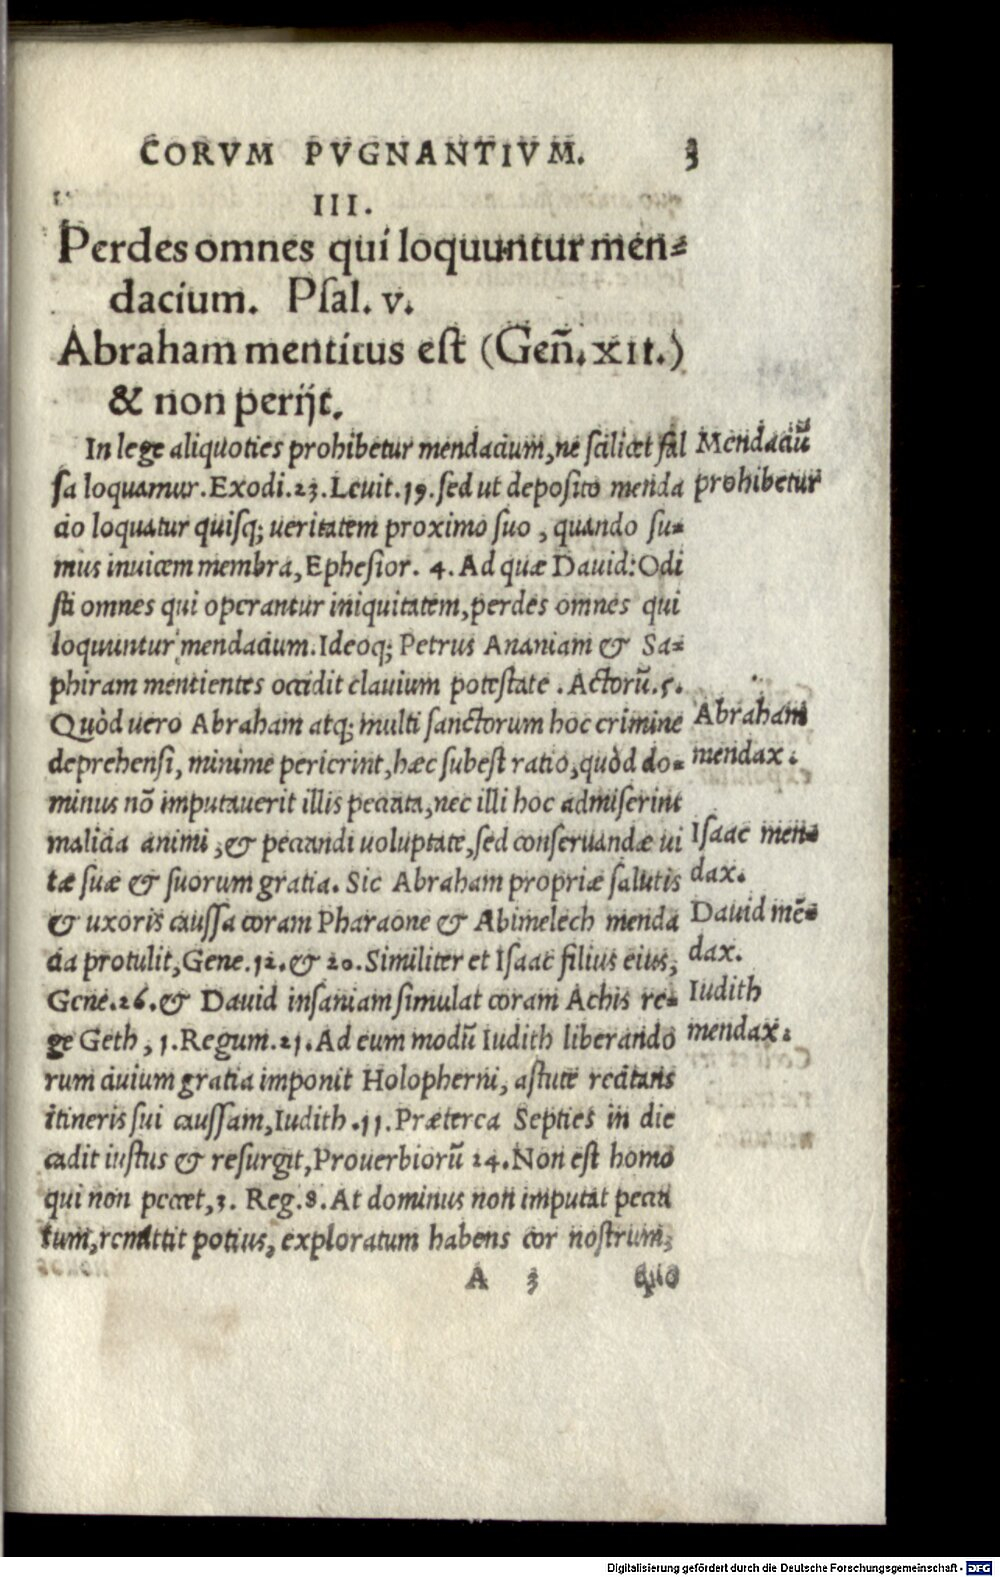 CORVM PVGNANTIVM. 3
III.
Perdes omnes qui loquuntur men⸗
dacium. Psal. v.
Abraham mentitus est (Geñ. XII.)
& non perijt.
In lege aliquoties prohibetur mendacium, ne scilicet fal
Mendaciū
sa loquamur. Exodi. 23. Leuit. 19. sed ut deposito menda
prohibetur
cio loquatur quisq; ueritatem proximo suo, quando su⸗
mus inuicem membra, Ephesior. 4. Ad quæ Dauid: Odi
sti omnes qui operantur iniquitatem, perdes omnes qui
loquuntur mendacium. Ideoq; Petrus Ananiam & Sa⸗
phiram mentientes occidit clauium potestate. Actorū. 5.
Quòd uero Abraham atq; multi sanctorum hoc crimine
Abraham
deprehensi, minime perierint, hæc subest ratio, quòd do⸗
mendax.
minus nō imputauerit illis peccata, nec illi hoc admiserint
malicia animi, & peccandi uoluptate, sed conseruandæ ui
Isaac men⸗
tæ suæ & suorum gratia. Sic Abraham propriæ salutis
dax.
& uxoris caussa coram Pharaone & Abimelech menda
Dauid mē⸗
cia protulit, Gene. 12. & 20. Similiter et Isaac filius eius,
dax.
Gene. 26. & Dauid insaniam simulat coram Achis re⸗
Iudith
ge Geth, 1. Regum. 21. Ad eum modū Iudith liberando
mendax.
rum ciuium gratia imponit Holopherni, astute recitans
itineris sui caussam, Iudith. 11. Præterea Septies in die
cadit iustus & resurgit, Prouerbiorū 24. Non est homo
qui non peccet, 3. Reg. 8. At dominus non imputat pecca
tum, remittit potius, exploratum habens cor nostrum,
A 3 quo
Digitalisierung gefördert durch die Deutsche Forschungsgemeinschaft - DFG